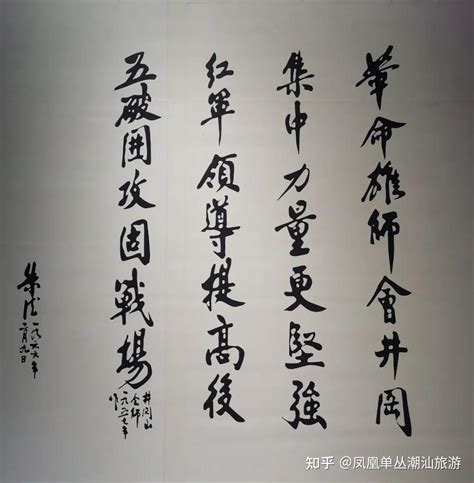 革命雄師會井岡
集中力量更堅強
紅軍領導提高後
五破围攻固戰場
井冈山
会师
一九二七年
作
朱德
一九六六年
二月九日
知乎 @凤凰单丛潮汕旅游